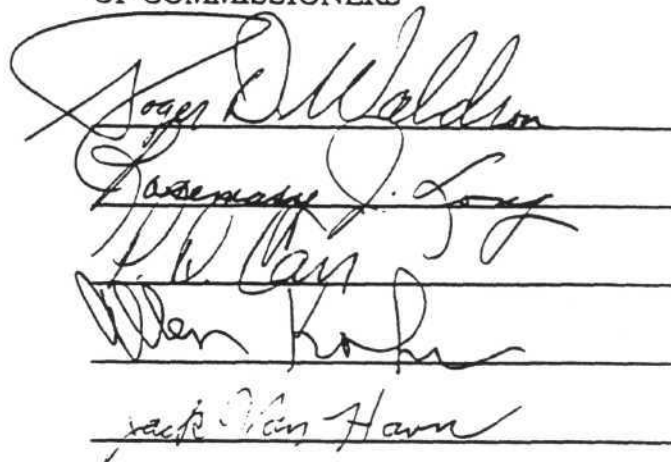 OF COMMISSIONERS
Roger D. Waldron
Rosemary J. Long
Allen
Jack Van Horn